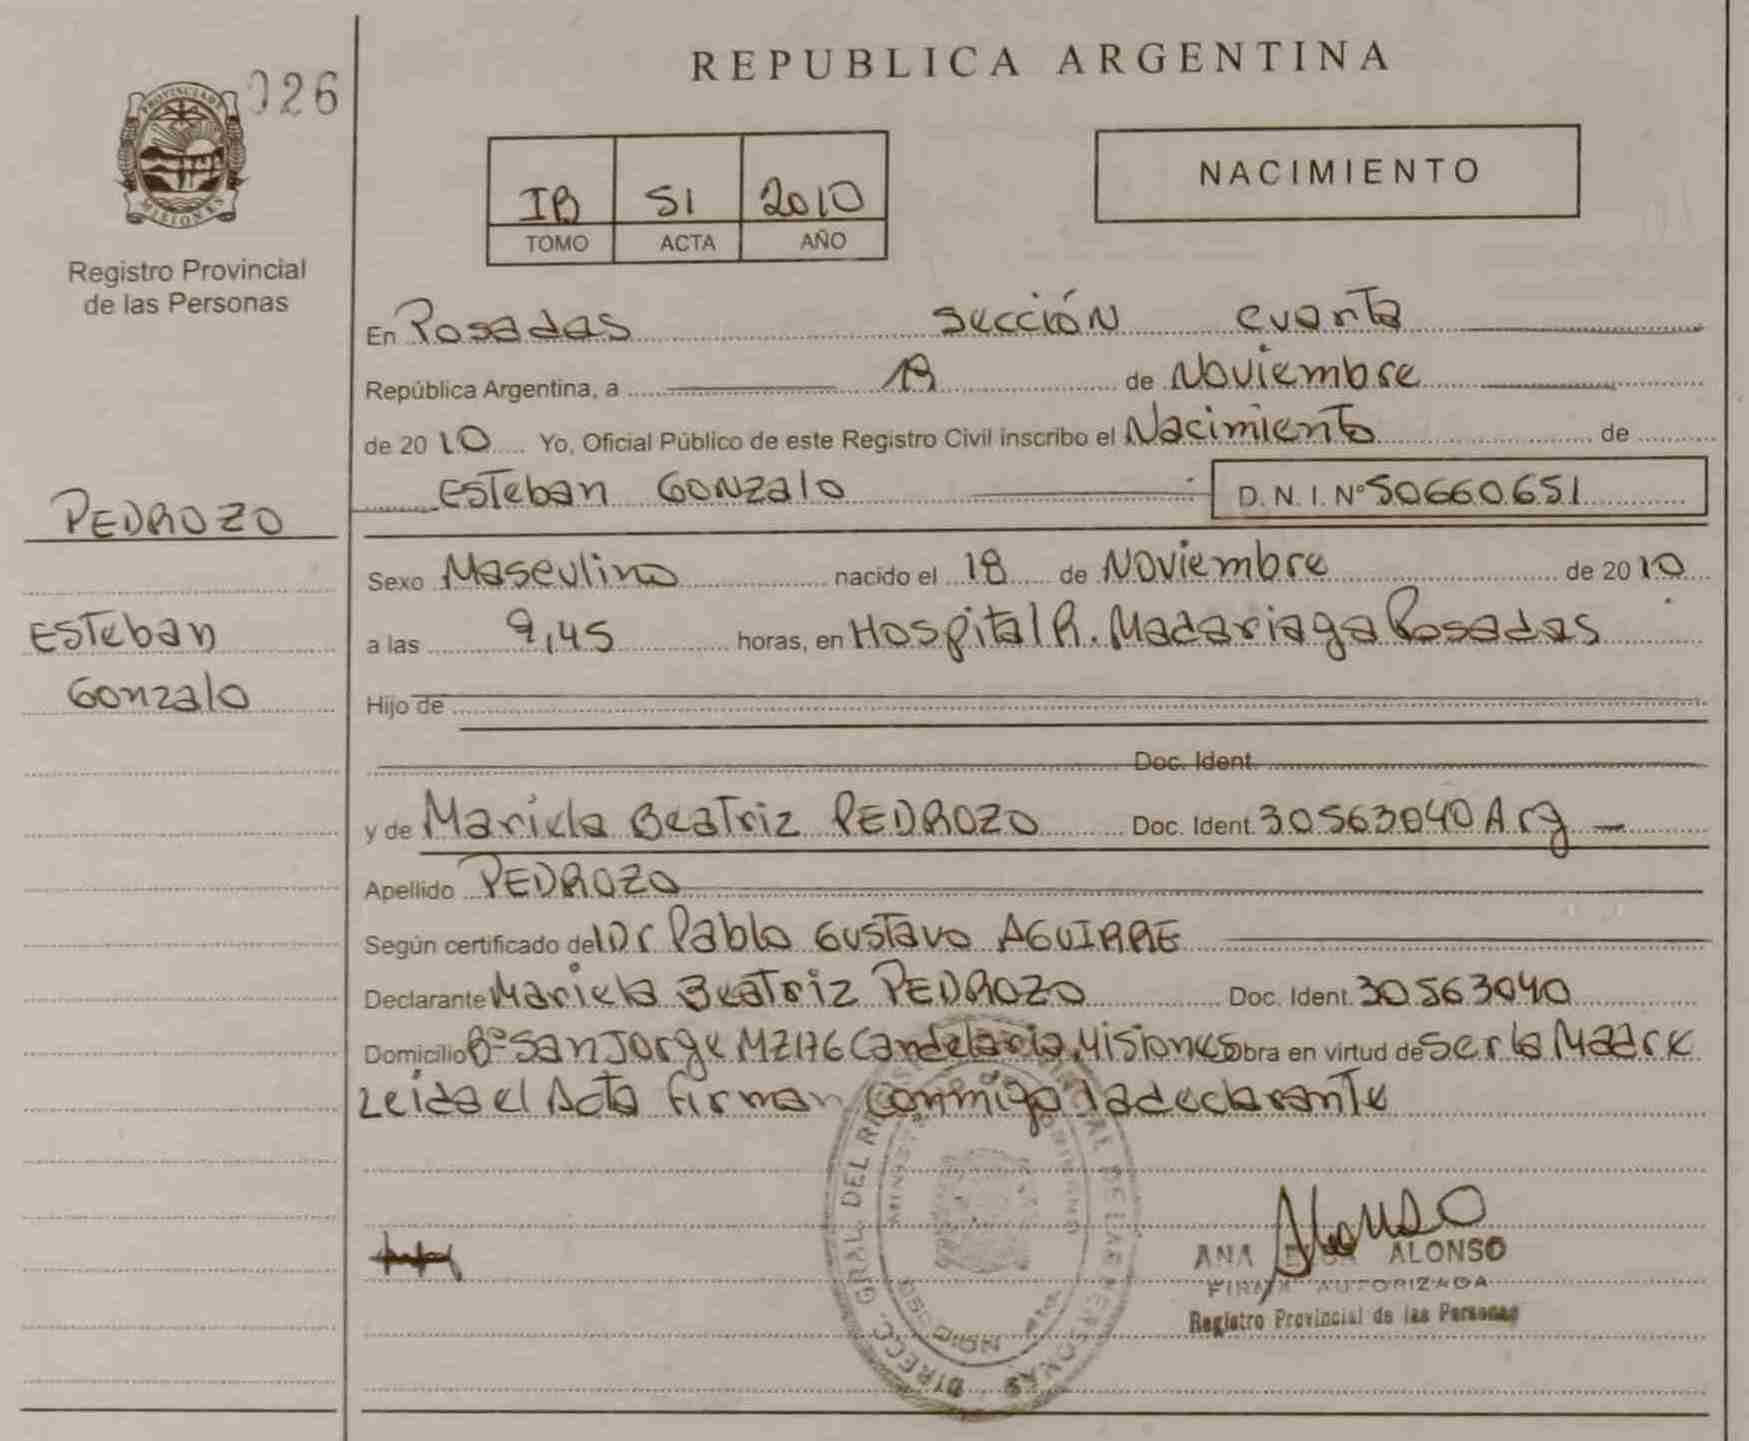 REPUBLICA ARGENTINA
026
PROVINCIA DE MISIONES
Registro Provincial
de las Personas
IB 51 2010
TOMO ACTA AÑO
NACIMIENTO
En Posadas sección cuarta
República Argentina, a 18 de Noviembre
de 2010 Yo, Oficial Público de este Registro Civil inscribo el Nacimiento de
Esteban Gonzalo D.N.I. Nº 50660651
PEDROZO
Esteban
Gonzalo
Sexo Masculino nacido el 18 de Noviembre de 2010
a las 9,45 horas, en Hospital R. Madariaga Posadas
Hijo de
Doc. Ident.
y de Mariela Beatriz PEDROZO Doc. Ident. 30563040 Arg
Apellido PEDROZO
Según certificado del Dr Pablo Gustavo AGUIRRE
Declarante Mariela Beatriz PEDROZO Doc. Ident. 30563040
Domicilio Bº San Jorge MZ176 Candelaria, Misiones Obra en virtud de ser la Madre
Leida el Acta firman conmigo la declarante
DIRECC. GRAL. DEL DE LAS PERSONAS
Alonso
ANA ALONSO
FIRMA AUTORIZADA
Registro Provincial de las Personas